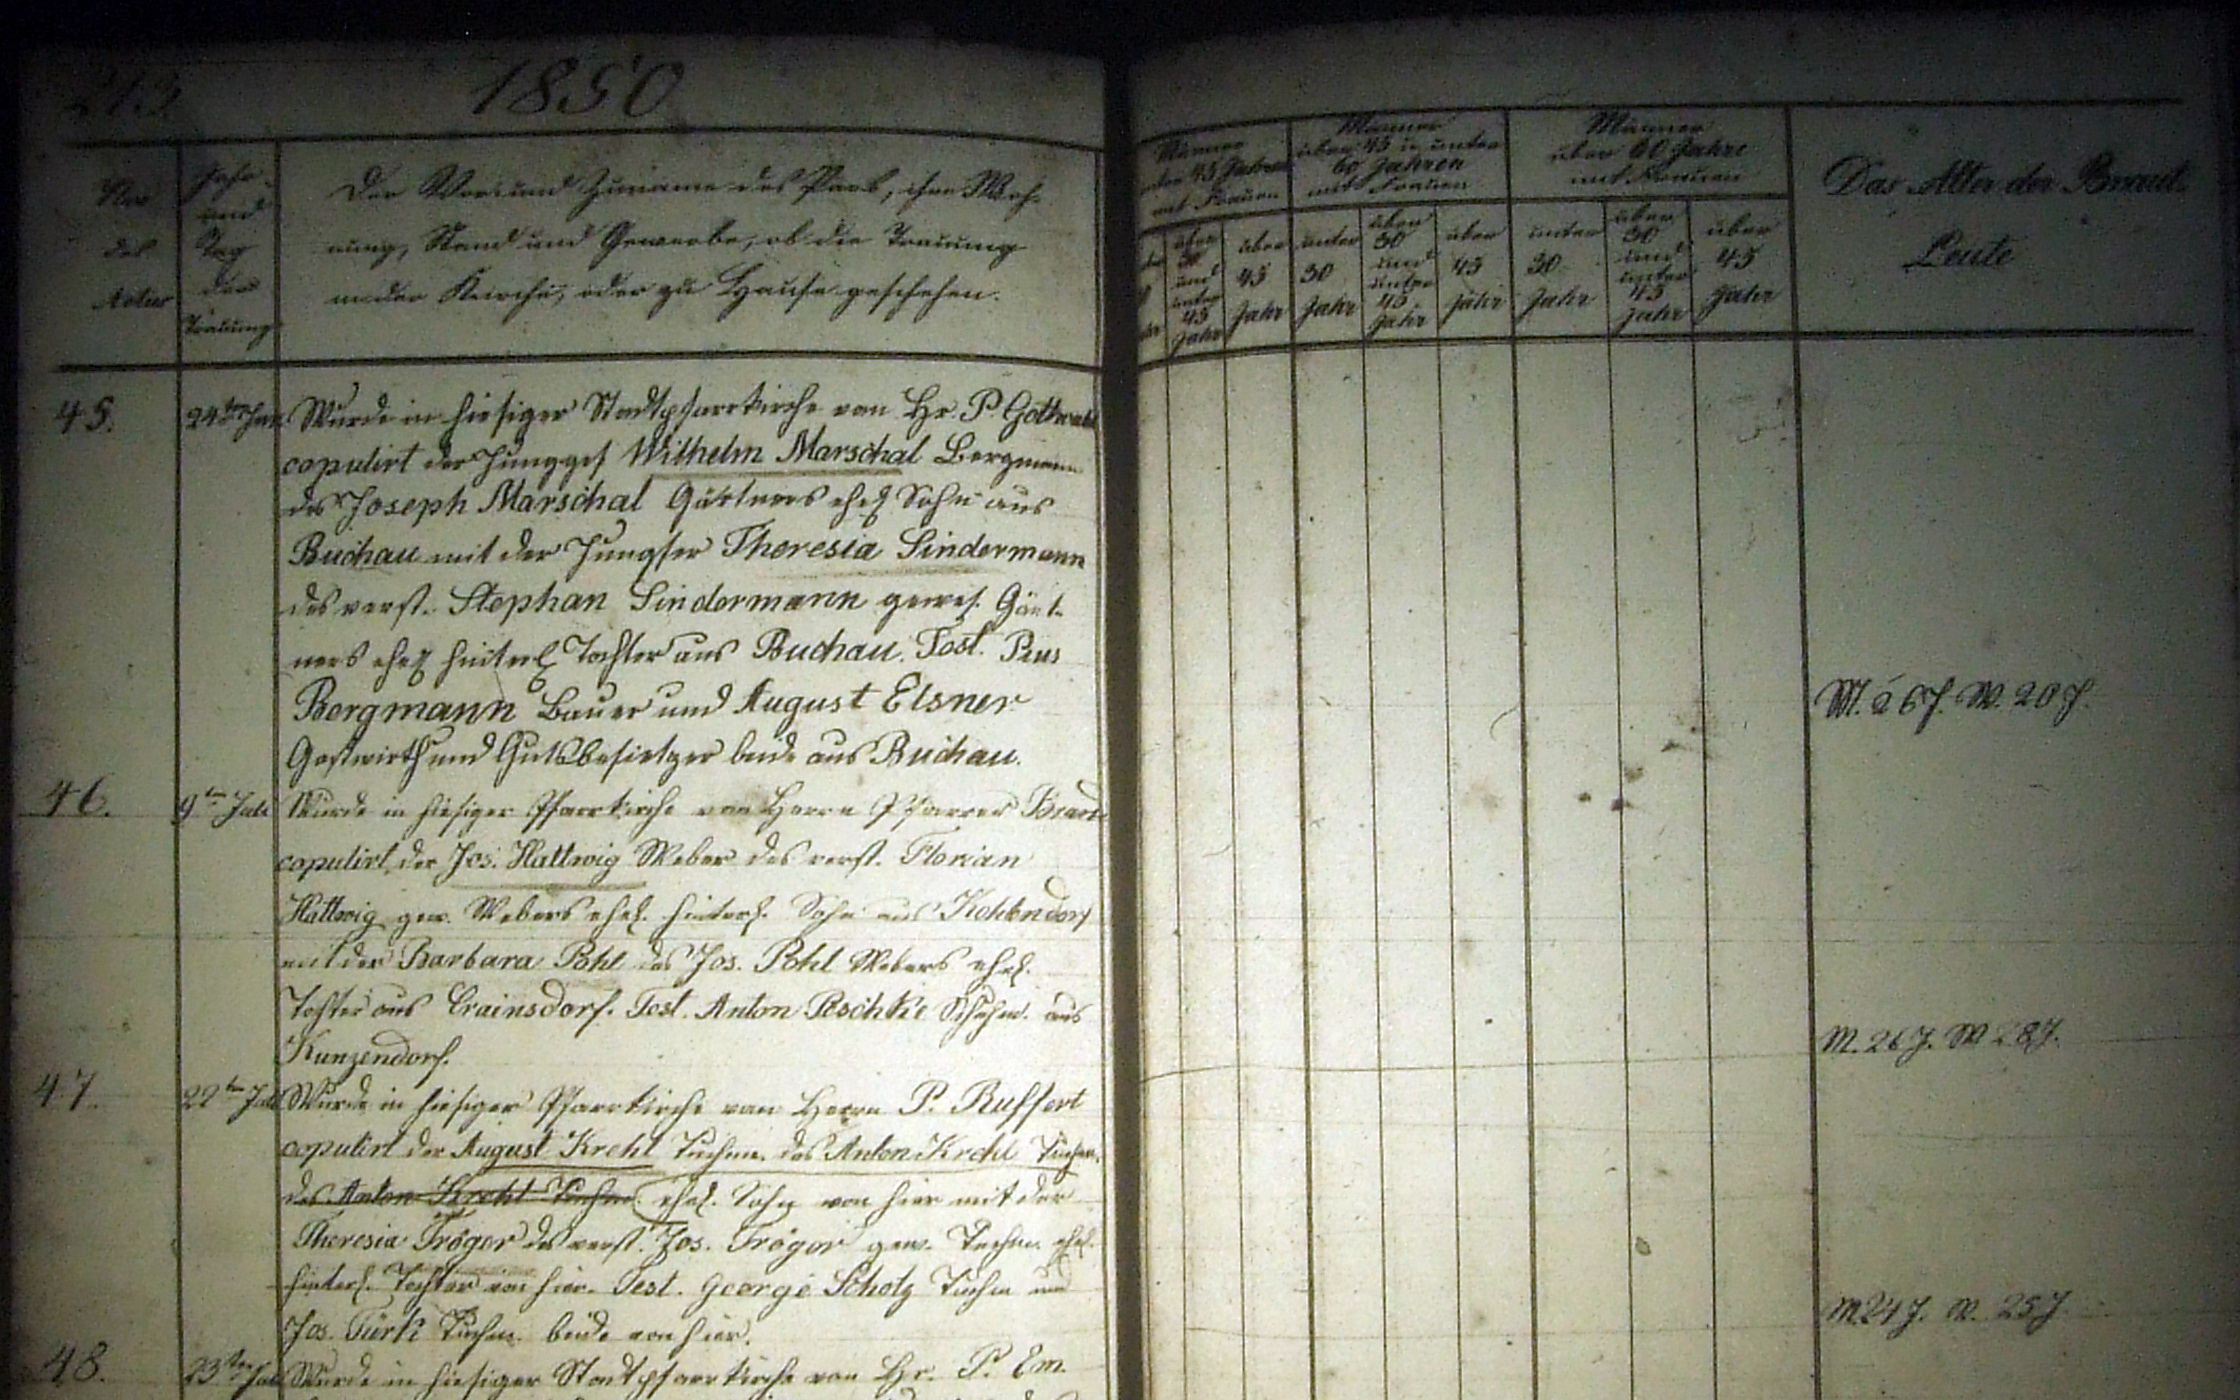 213
1850
Nro des Actus
Jahr und Tag der Trauung
Der Vor und Zuname des Paars, ihre Woh-
nung, Stand und Gewerbe, ob die Trauung
in der Kirche, oder zu Hause geschehen.
Männer
45 Jahren
mit Frauen
Männer
über 45 u unter
60 Jahren
mit Frauen
Männer
über 60 Jahre
mit Frauen
über 30 und unter 45 Jahr
über 45 Jahr
unter 30 Jahr
über 30 und unter 45 Jahr
über 45 Jahr
unter 30 Jahr
über 30 und unter 45 Jahr
über 45 Jahr
Das Alter der Braut-
Leute
45.
24ten
Wurde in hiesiger Stadtpfarrkirche von Hr. P. Gottwald
copulirt der Junggs Wilhelm Marschal Bergmann
des Joseph Marschal Gärtners ehel Sohn aus
Buchau mit der Jungfer Theresia Sindermann
des verst. Stephan Sindermann gewes. Gärt-
ners ehel hinterl Tochter aus Buchau. Test. Pius
Bergmann Bauer und August Elsner
Gastwirth und Gutsbesietzer beide aus Buchau.
M. 26 J. W. 20 J.
46.
9ten Juli
Wurde in hiesiger Pfarrkirche von Herrn Pfarrer
copulirt der Jos. Hattwig Weber des verst. Florian
Hattwig gew. Webers ehel. hinterl. Sohn aus Kohlendorf
mit der Barbara Pohl des Jos. Pohl Webers ehel.
Tochter aus Crainsdorf. Test. Anton Peschke Schuhm. aus
Kunzendorf.
M. 26 J. W 28 J.
47.
22ten Juli
Wurde in hiesiger Pfarrkirche von Herrn P. Ruffert
copulirt der August Krehl Tuchm. des Anton Krehl Tuchm.
des Anton Krehl Tuchm. ehel. Sohn von hier mit der
Theresia Tröger des verst. Jos. Tröger gew. Tuchm. ehel.
hinterl. Tochter von hier. Test. George Scholz Tuchm und
Jos. Türk Tuchm. beide von hier.
M 24 J. W. 25 J
48.
23ten Juli
Wurde in hiesiger Stadtpfarrkirche von Hr. P. Em.